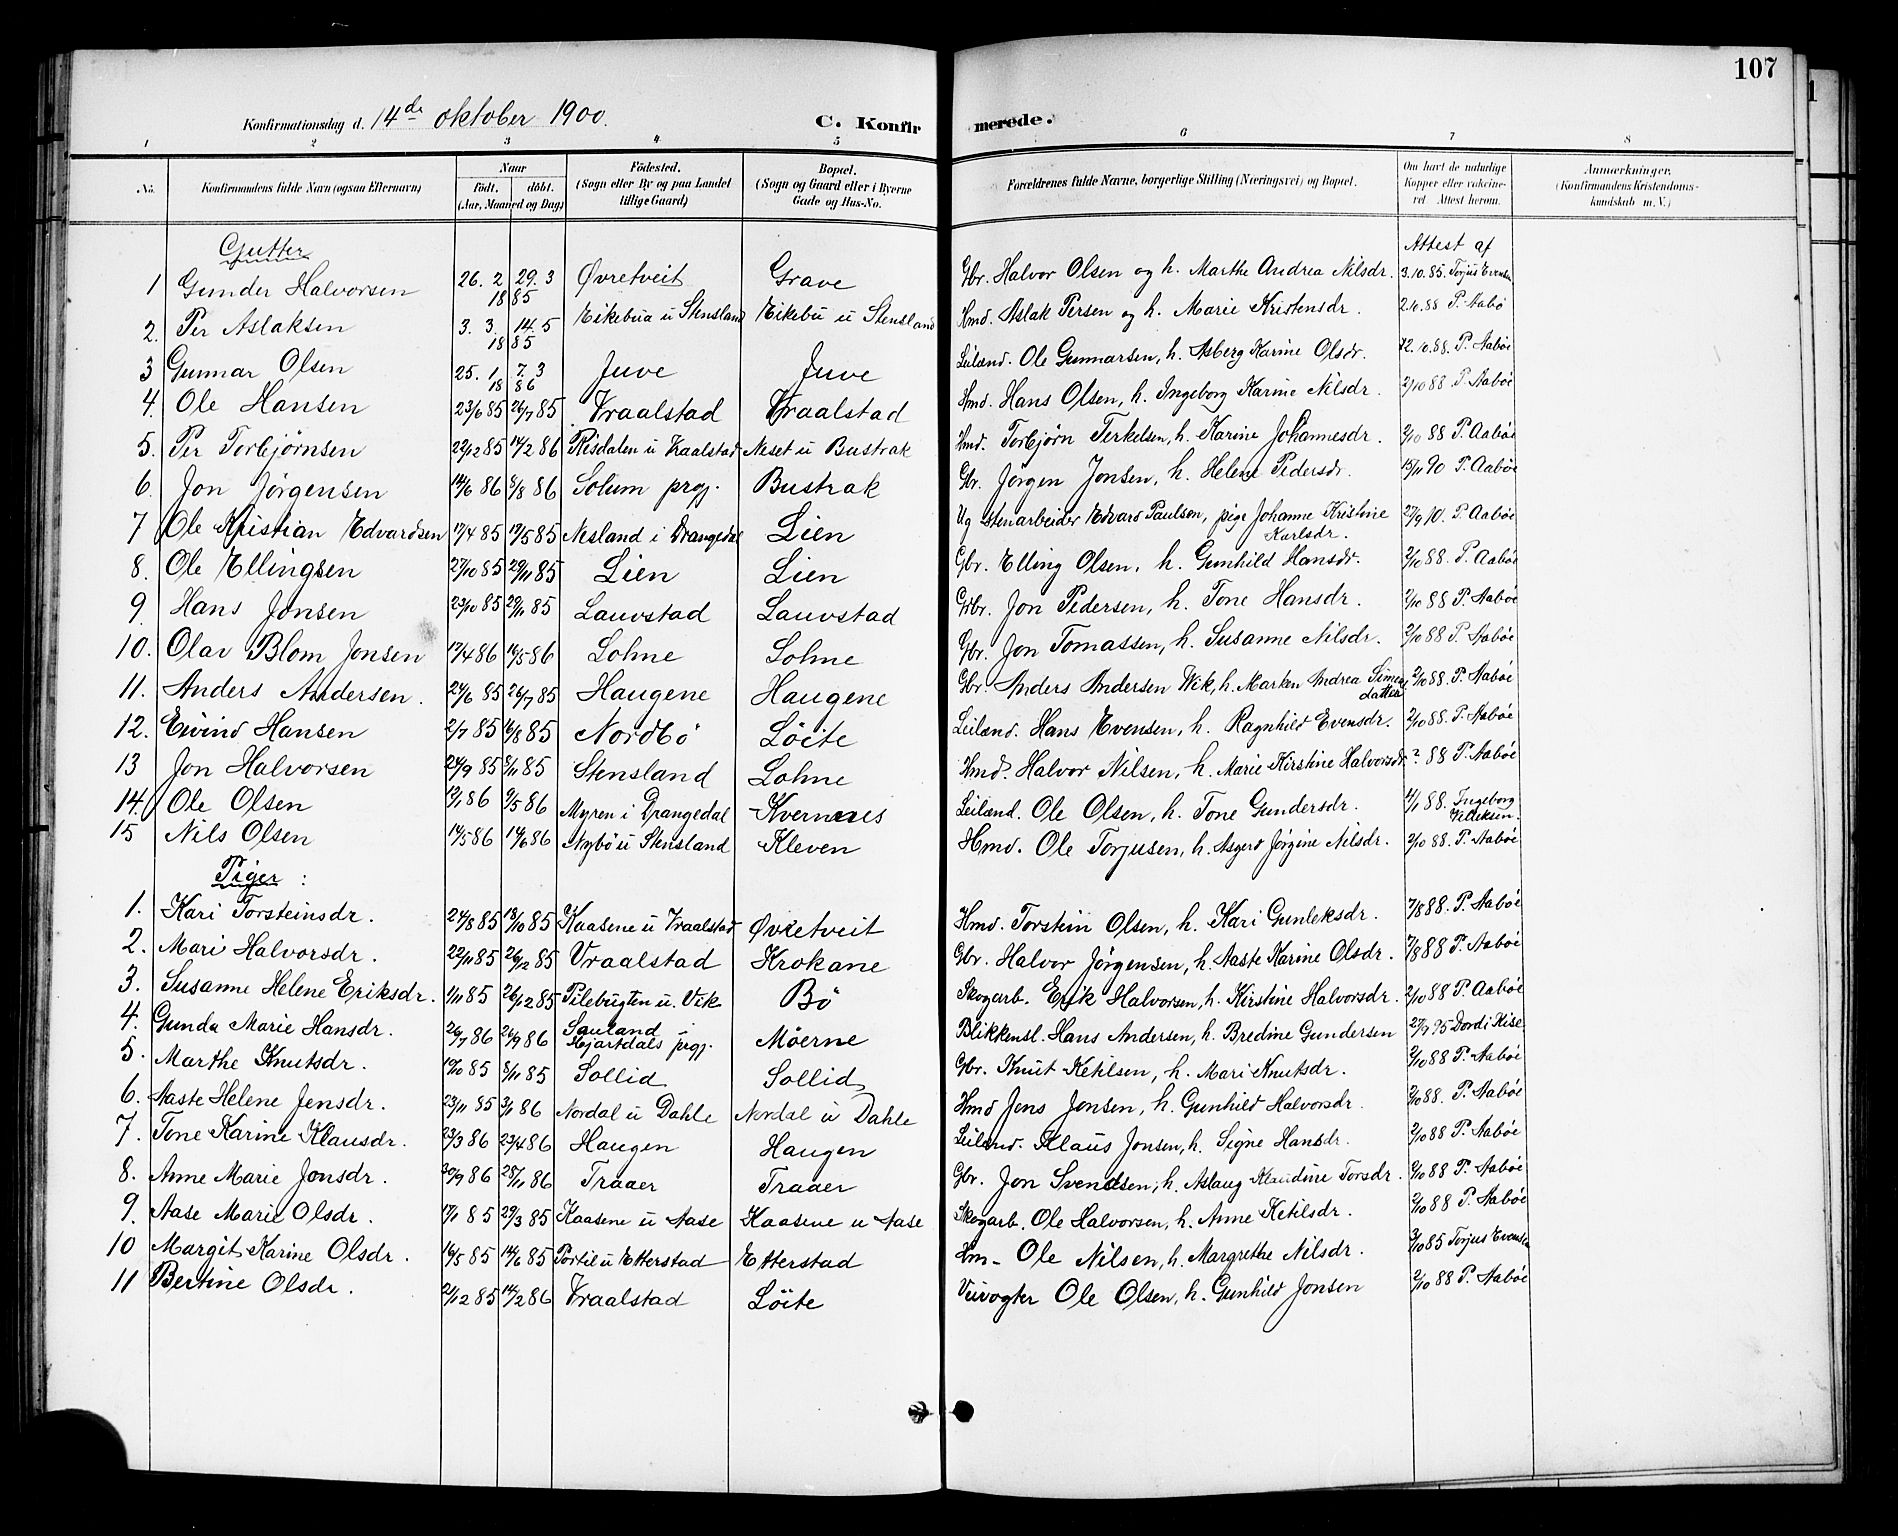 107
Konfirmationsdag d. 14de oktober 1900. C. Konfir merede.
1 2 3 4 5 6 7 8
No. Konfirmandens fulde Navn (ogsaa Efternavn) Naar født. døbt. (Aar, Maaned og Dag) Fødested. (Sogn eller By og paa Landet tillige Gaard) Bopæl. (Sogn og Gaard eller i Byerne Gade og Hus-No. Forældrenes fulde Navne, borgerlige Stilling (Næringsvei) og Bopæl. Om havt de naturlige Kopper eller vakcineret. Attest herom. Anmærkninger. (Konfirmandens Kristendomskundskab m. V.)
Gutter Attest af
1 Gunder Halvorsen 26. 2 29. 3 1885 Øvretveit Grave Gbr. Halvor Olsen og h. Marthe Andrea Nilsdr. 3.10.85. Torjus Evensen
2. Per Aslaksen 3. 3. 14. 5 1885 Eikebua u Stensland Eikebu u Stensland Hmd. Aslak Persen og h. Marie Kristensdr. 2.10.88 P. Aabø
3 Gunnar Olsen 25. 1. 7. 3 1886 Juve Juve Leilænd. Ole Gunnarsen, h. Asberg Karine Olsdr. 2.10.88. P. Aabøe
4. Ole Hansen 23/6 85 26/7 85 Vraalstad Vraalstad Hmd. Hans Olsen, h. Ingeborg Karine Nilsdr. 2/10 88 P. Aabøe
5. Per Torbjørnsen 22/12 85 14/2 86 Risdalen u Vraalstad Neset u Bustrak Hmd. Torbjørn Terkelsen, h. Karine Johannesdr. 2/10 88 P. Aabøe
6. Jon Jørgensen 14/6 86 8/8 86 Solum prgj. Bustrak Gbr. Jørgen Jonsen, h. Helene Pedersdr. 15/11 90 P. Aabøe
7 Ole Kristian Edvardsen 17/4 85 19/5 85 Nesland i Drangedal Lien Ug stenarbeider Edvard Paulsen, pige Johanne Kristine Karlsdr. 27/9 10. P. Aabøe
8. Ole Ellingsen 27/10 85 29/11 85 Lien Lien Gbr. Elling Olsen. h. Gunhild Hansdr. 2/10 88. P. Aabøe
9. Hans Jonsen 23/10 85 29/11 85 Lauvstad Lauvstad Gbr. Jon Pedersen, h. Tone Hansdr. 2/10 88 P. Aabøe
10. Olav Blom Jonsen 17/4 86 16/5 86 Lohne Lohne Gbr. Jon Tomassen, h. Susanne Nilsdr. 2/10 88 P. Aabøe
11. Anders Andersen. 24/6 85 26/7 85 Haugene Haugene Gbr. Anders Andersen Wik, h. Marken Andrea Simensdatter 2/10 88. P. Aabøe
12. Eivind Hansen 2/7 85 16/8 85 Nordbö Löite Leilænd. Hans Evensen, h. Ragnhild Evensdr. 2/10 88. P. Aabøe
13 Jon Halvorsen 24/9 85 8/11 85 Stensland Lohne Hmd. Halvor Nilsen, h. Marie Kirstine Halvorsdr. ? 88 P. Aabøe
14. Ole Olsen 19/1 86 9/5 86 Myren i Drangedal Kvernnes Leilænd. Ole Olsen, h. Tone Gundersdr. 4/1 88. Ingeborg
15 Nils Olsen 14/5 86 14/6 86 Nybö u Stensland Kleven Hmd. Ole Torjusen, h. Asgerd Jørgine Nilsdr. 2/10 88. P. Aabøe
Piger :
1. Kari Torsteinsdr. 24/8 85 18/10 85 Kaasene u Vraalstad Øvretveit Hmd. Torstein Olsen, h. Kari Gunleksdr. 7/8 88. P. Aabøe
2. Mari Halvorsdr. 22/11 85 26/12 85 Vraalstad Krokane Gbr. Halvor Jørgensen, h. Aaste Karine Olsdr. 7/8 88 P. Aabøe
3. Susanne Helene Eriksdr. 1/11 85 26/12 85 Pilebugten u. Vik Bö Skogarb. Erik Halvorsen, h. Kirstine Halvorsdr. 2/10 88 P. Aabøe
4. Gunda Marie Hansdr. 26/7 86 26/9 86 Sauland Hjartdals prgj. Möerne Blikkensl. Hans Andersen, h. Bredine Gundersen 27/9 95 Dordi Kise
5. Marthe Knutsdr. 19/10 85 8/11 85 Sollid Sollid Gbr. Knut Ketilsen, h. Mari Knutsdr. 2/10 88 P. Aabøe
6. Aaste Helene Jensdr. 23/11 85 3/1 86 Nordal u Dahle Nordal u Dahle Hmd Jens Jensen, h. Gunhild Halvorsdr. 2/10 88. P. Aabøe
7. Tone Karine Klausdr. 23/3 86 23/4 86 Haugen Haugen Leilænd. Klaus Jonsen, h. Signe Hansdr. 2/10 88 P. Aabøe
8. Anne Marie Jonsdr. 30/9 86 28/11 86 Traaer Traaer Gbr. Jon Svendsen, h. Aslaug Klaudine Torsdr. 2/10 88 P. Aabøe
9. Aase Marie Olsdr. 17/1 85 29/3 85 Kaasene u Aase Kaasene u Aase Skogarb. Ole Halvorsen, h. Anne Ketilsdr. 2/10 88 P. Aabøe
10 Margit Karine Olsdr. 16/5 85 14/6 85 Portil u Etterstad Etterstad Hm- Ole Nilsen, h. Margrethe Nilsdr. 3/10 85 Torjus Evensen
11 Bertine Olsdr. 21/12 85 14/2 86 Vraalstad Löite Veivogter Ole Olsen, h. Gunhild Jonsen 2/10 88 P. Aabøe